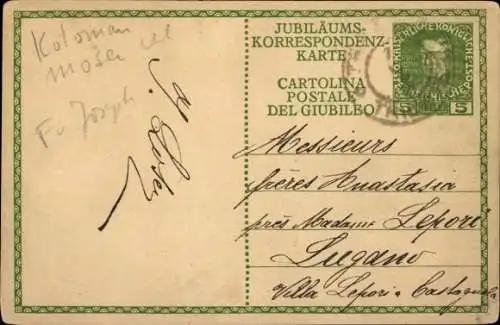 Koloman
Moser
F. Joseph
JUBILÄUMS-
KORRESPONDENZ-
KARTE
CARTOLINA
POSTALE
DEL GIUBILEO
5 5
Messieurs
frères Anastasia
près Madame Lepori
Lugano
Villa Lepori - Castagnola